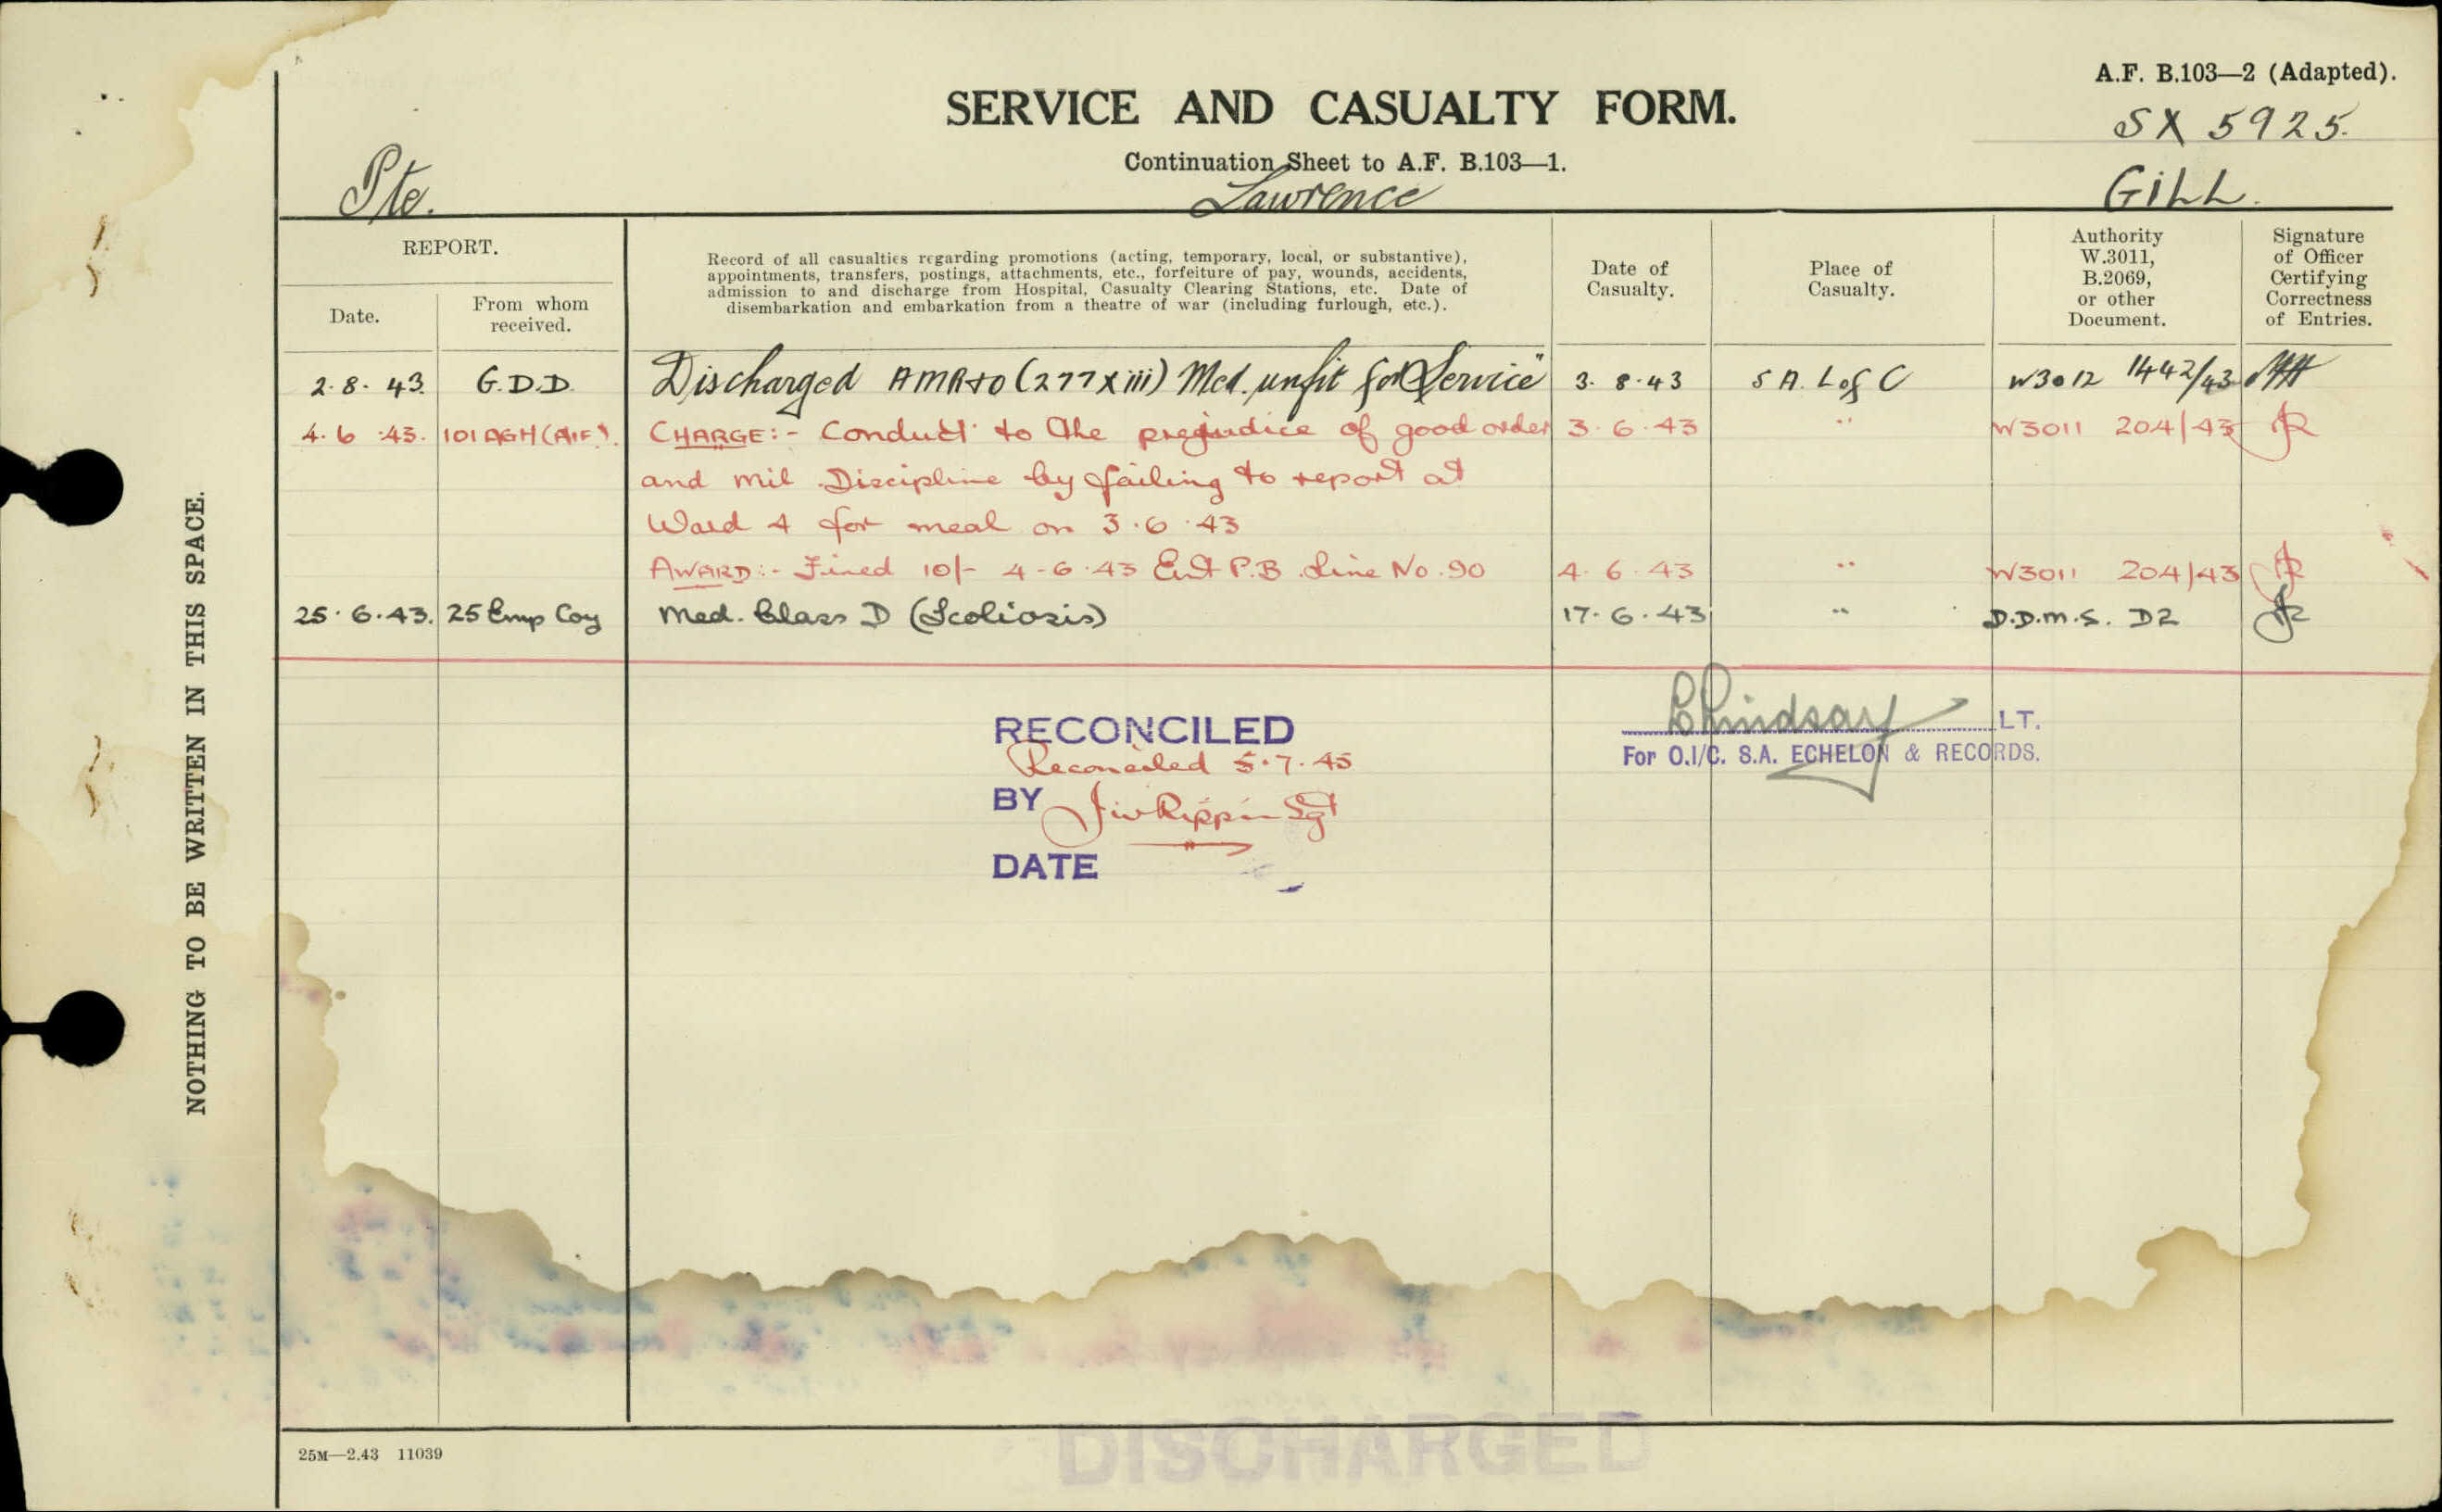 A.F. B.103—2 (Adapted).
SERVICE AND CASUALTY FORM.
SX 5925.
Continuation Sheet to A.F. B.103—1.
Pte. Lawrence GILL.
REPORT.
Date.
From whom
received.
Record of all casualties regarding promotions (acting, temporary, local, or substantive),
appointments, transfers, postings, attachments, etc., forfeiture of pay, wounds, accidents,
admission to and discharge from Hospital, Casualty Clearing Stations, etc. Date of
disembarkation and embarkation from a theatre of war (including furlough, etc.).
Date of
Casualty.
Place of
Casualty.
Authority
W.3011,
B.2069,
or other
Document.
Signature
of Officer
Certifying
Correctness
of Entries.
2.8.43. G.D.D. Discharged AMR+O (277 X iii) Med. unfit for Service" 3.8.43 S A. L of C W3012 1442/43
4.6.43. 101 AGH (AIF). CHARGE:- Conduct to the prejudice of good order 3.6.43 " W3011 204/43
and mil Discipline by failing to report at
Ward 4 for meal on 3.6.43
AWARD:- Fined 10/- 4-6.43 Ent P.B. Line No. 90 4.6.43 " W3011 204/43
25.6.43. 25 Emp Coy Med. Class D (Scoliosis) 17.6.43 " D.D.M.S. D2
RECONCILED
Reconciled 5.7.45
BY Sgt
DATE
Lindsay LT.
For O.I/C. S.A. ECHELON & RECORDS.
NOTHING TO BE WRITTEN IN THIS SPACE.
25M—2.43 11039
DISCHARGED